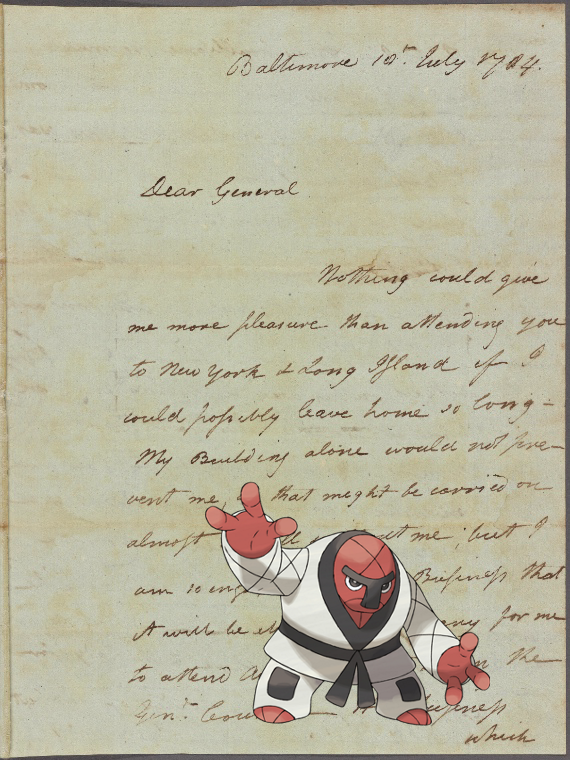 Baltimore 10th. July 1784.
Dear General
Nothing could give
me more pleasure than attending you
to New York & Long Island if I
could possibly leave home so long-
My Building alone would not pre-
vent me, that might be carried on
almost me; but I
am so eng Business that
it will be for me
to attend the
Genl. Business
which